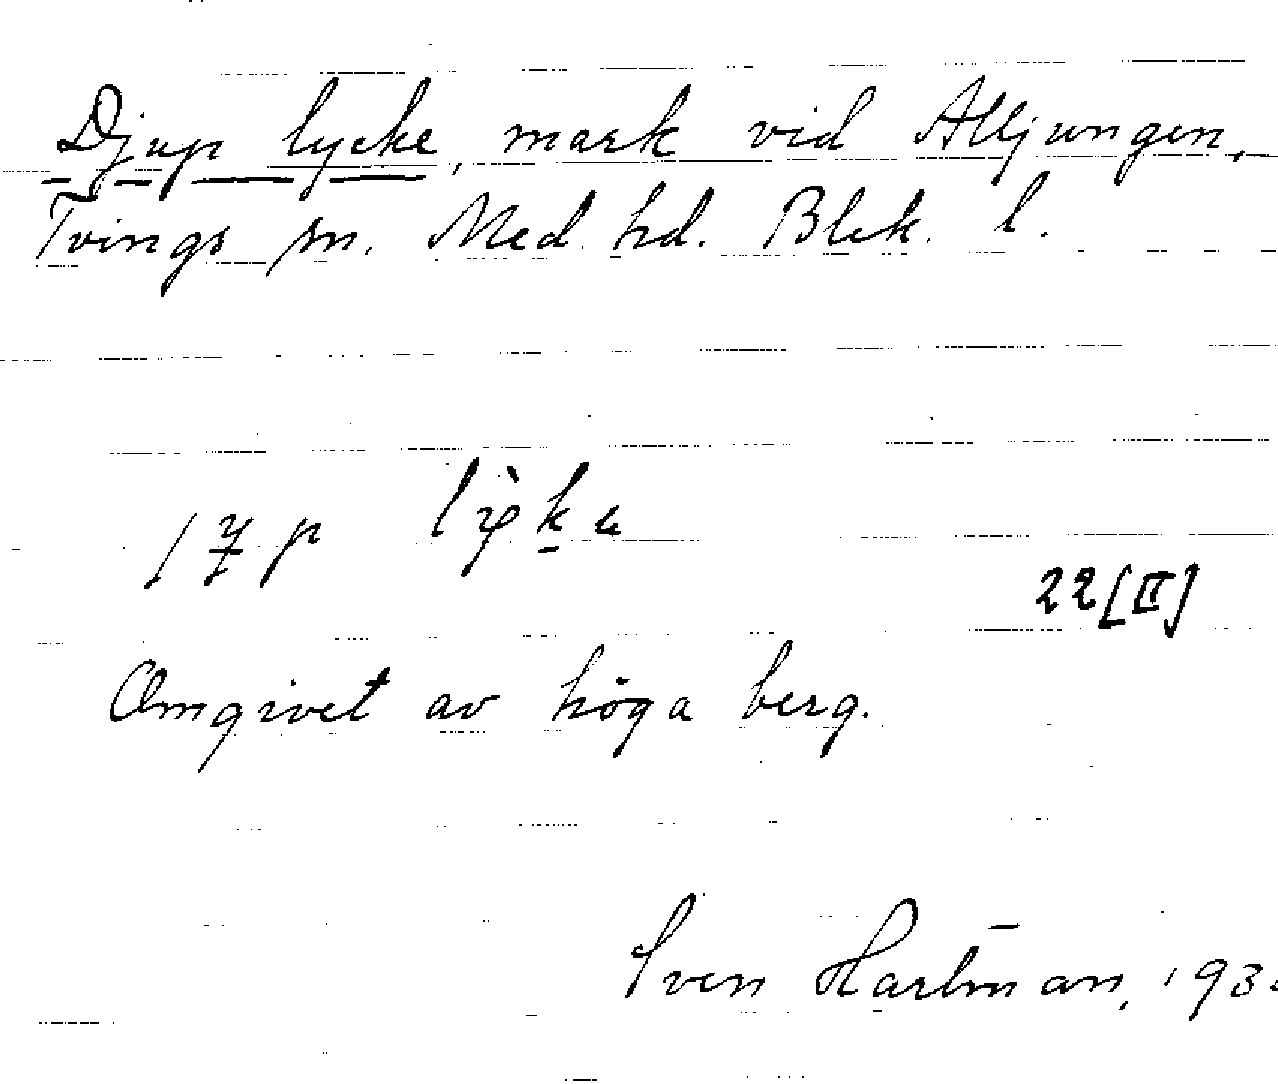 Djup lycke, mark vid Alljungen,
Tvings sn. Med. hd. Blek. l.
22[II]
Omgivet av höga berg.
Sven Hartman, 193